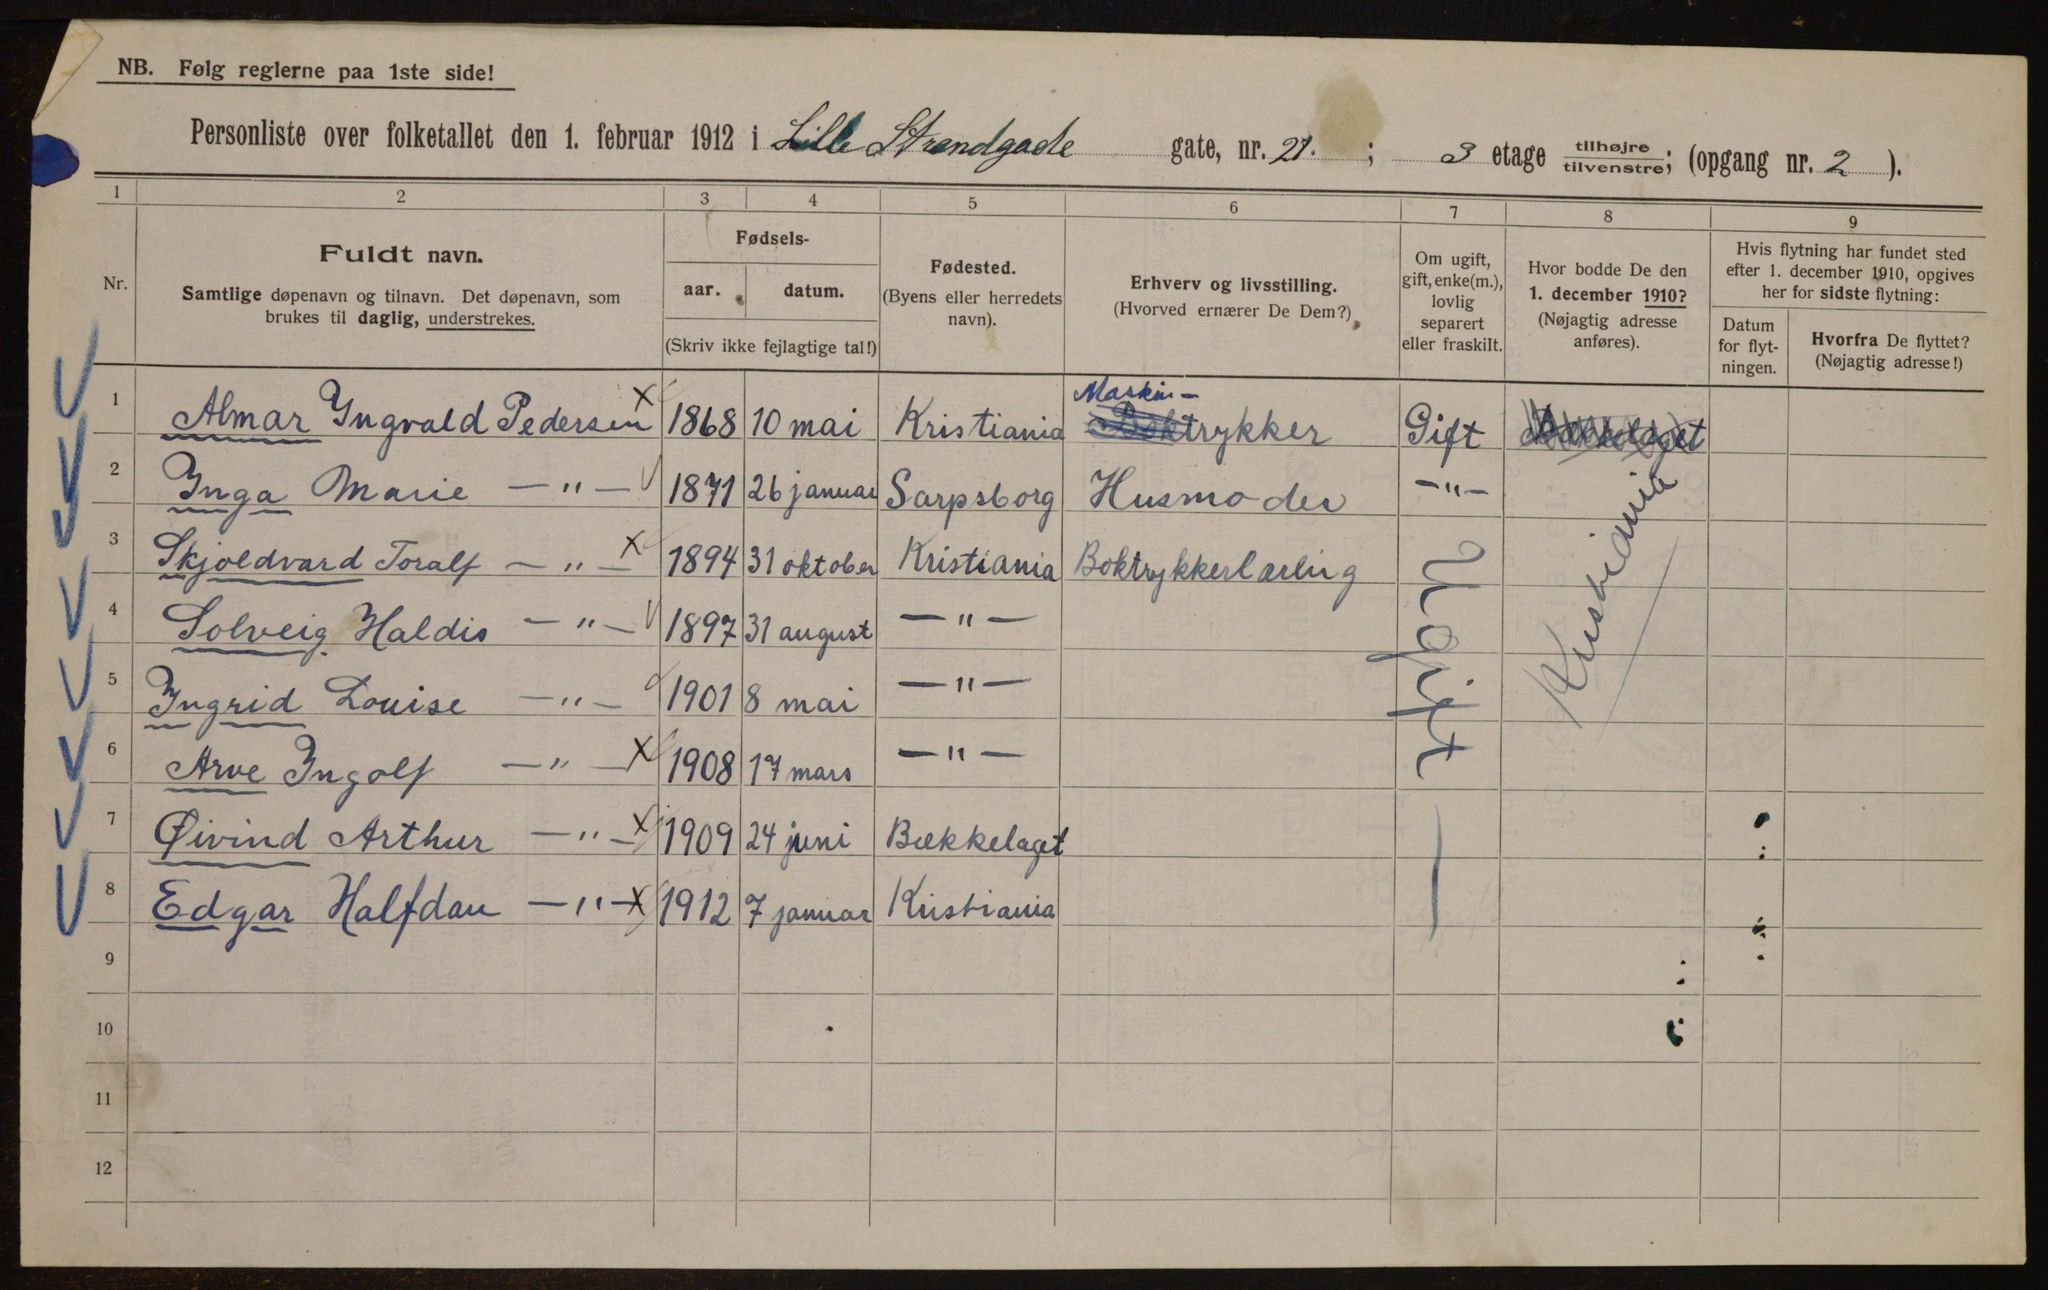 NB. Følg reglerne paa 1ste side!
Personliste over folketallet den 1. februar 1912 i Lille Strandgade gate, nr. 21. ; 3 etage tilhøjre/tilvenstre; (opgang nr. 2 ).
1 2 3 4 5 6 7 8 9
Nr.
Fuldt navn.
Samtlige døpenavn og tilnavn. Det døpenavn, som
brukes til daglig, understrekes.
Fødsels-
aar. datum.
(Skriv ikke fejlagtige tal!)
Fødested.
(Byens eller herredets
navn).
Erhverv og livsstilling.
(Hvorved ernærer De Dem?)
Om ugift,
gift, enke(m.),
lovlig
separert
eller fraskilt.
Hvor bodde De den
1. december 1910?
(Nøjagtig adresse
anføres).
Hvis flytning har fundet sted
efter 1. december 1910, opgives
her for sidste flytning:
Datum
for flyt-
ningen.
Hvorfra De flyttet?
(Nøjagtig adresse!)
Maskin-
1 Almar Yngvald Pedersen x 1868 10 mai Kristiania Boktrykker Gift Bækkelaget
2 Ynga Marie -"- 1871 26 januar Sarpsborg Husmoder -"-
3 Skjoldvard Toralf -"- x 1894 31 oktober Kristiania Boktrykkerlærling
4 Solveig Haldis -"- 1897 31 august -"-
Ugift
Kristiania
5 Yngrid Louise -"- 1901 8 mai -"-
6 Arve Yngolf -"- x 1908 17 mars -"-
7 Øivind Arthur -"- x 1909 24 juni Bækkelaget
8 Edgar Halfdan -"- x 1912 7 januar Kristiania
9
10
11
12